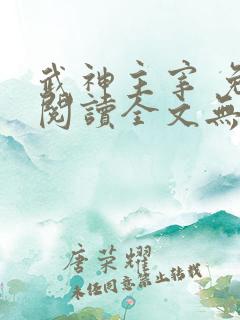 武神主宰 免
閱讀全文無
唐荣耀
未经同意禁止转载